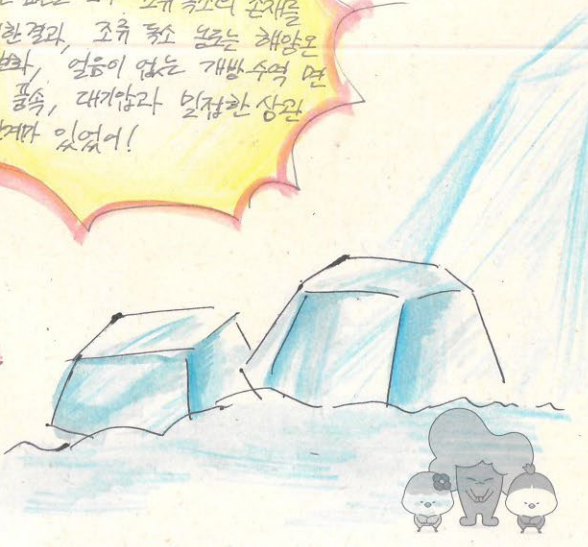 조류 독소의 존재를
한 결과, 조류 독소 농도는 해양온
변화, 얼음이 없는 개방 수역 면
풍속, 대기압과 밀접한 상관
있었어!